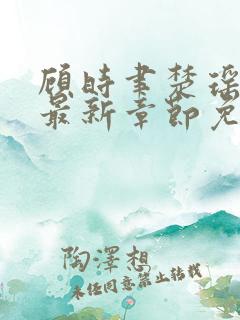 顾时聿楚瑶
最新章节免
陶澤想
未经同意禁止转载